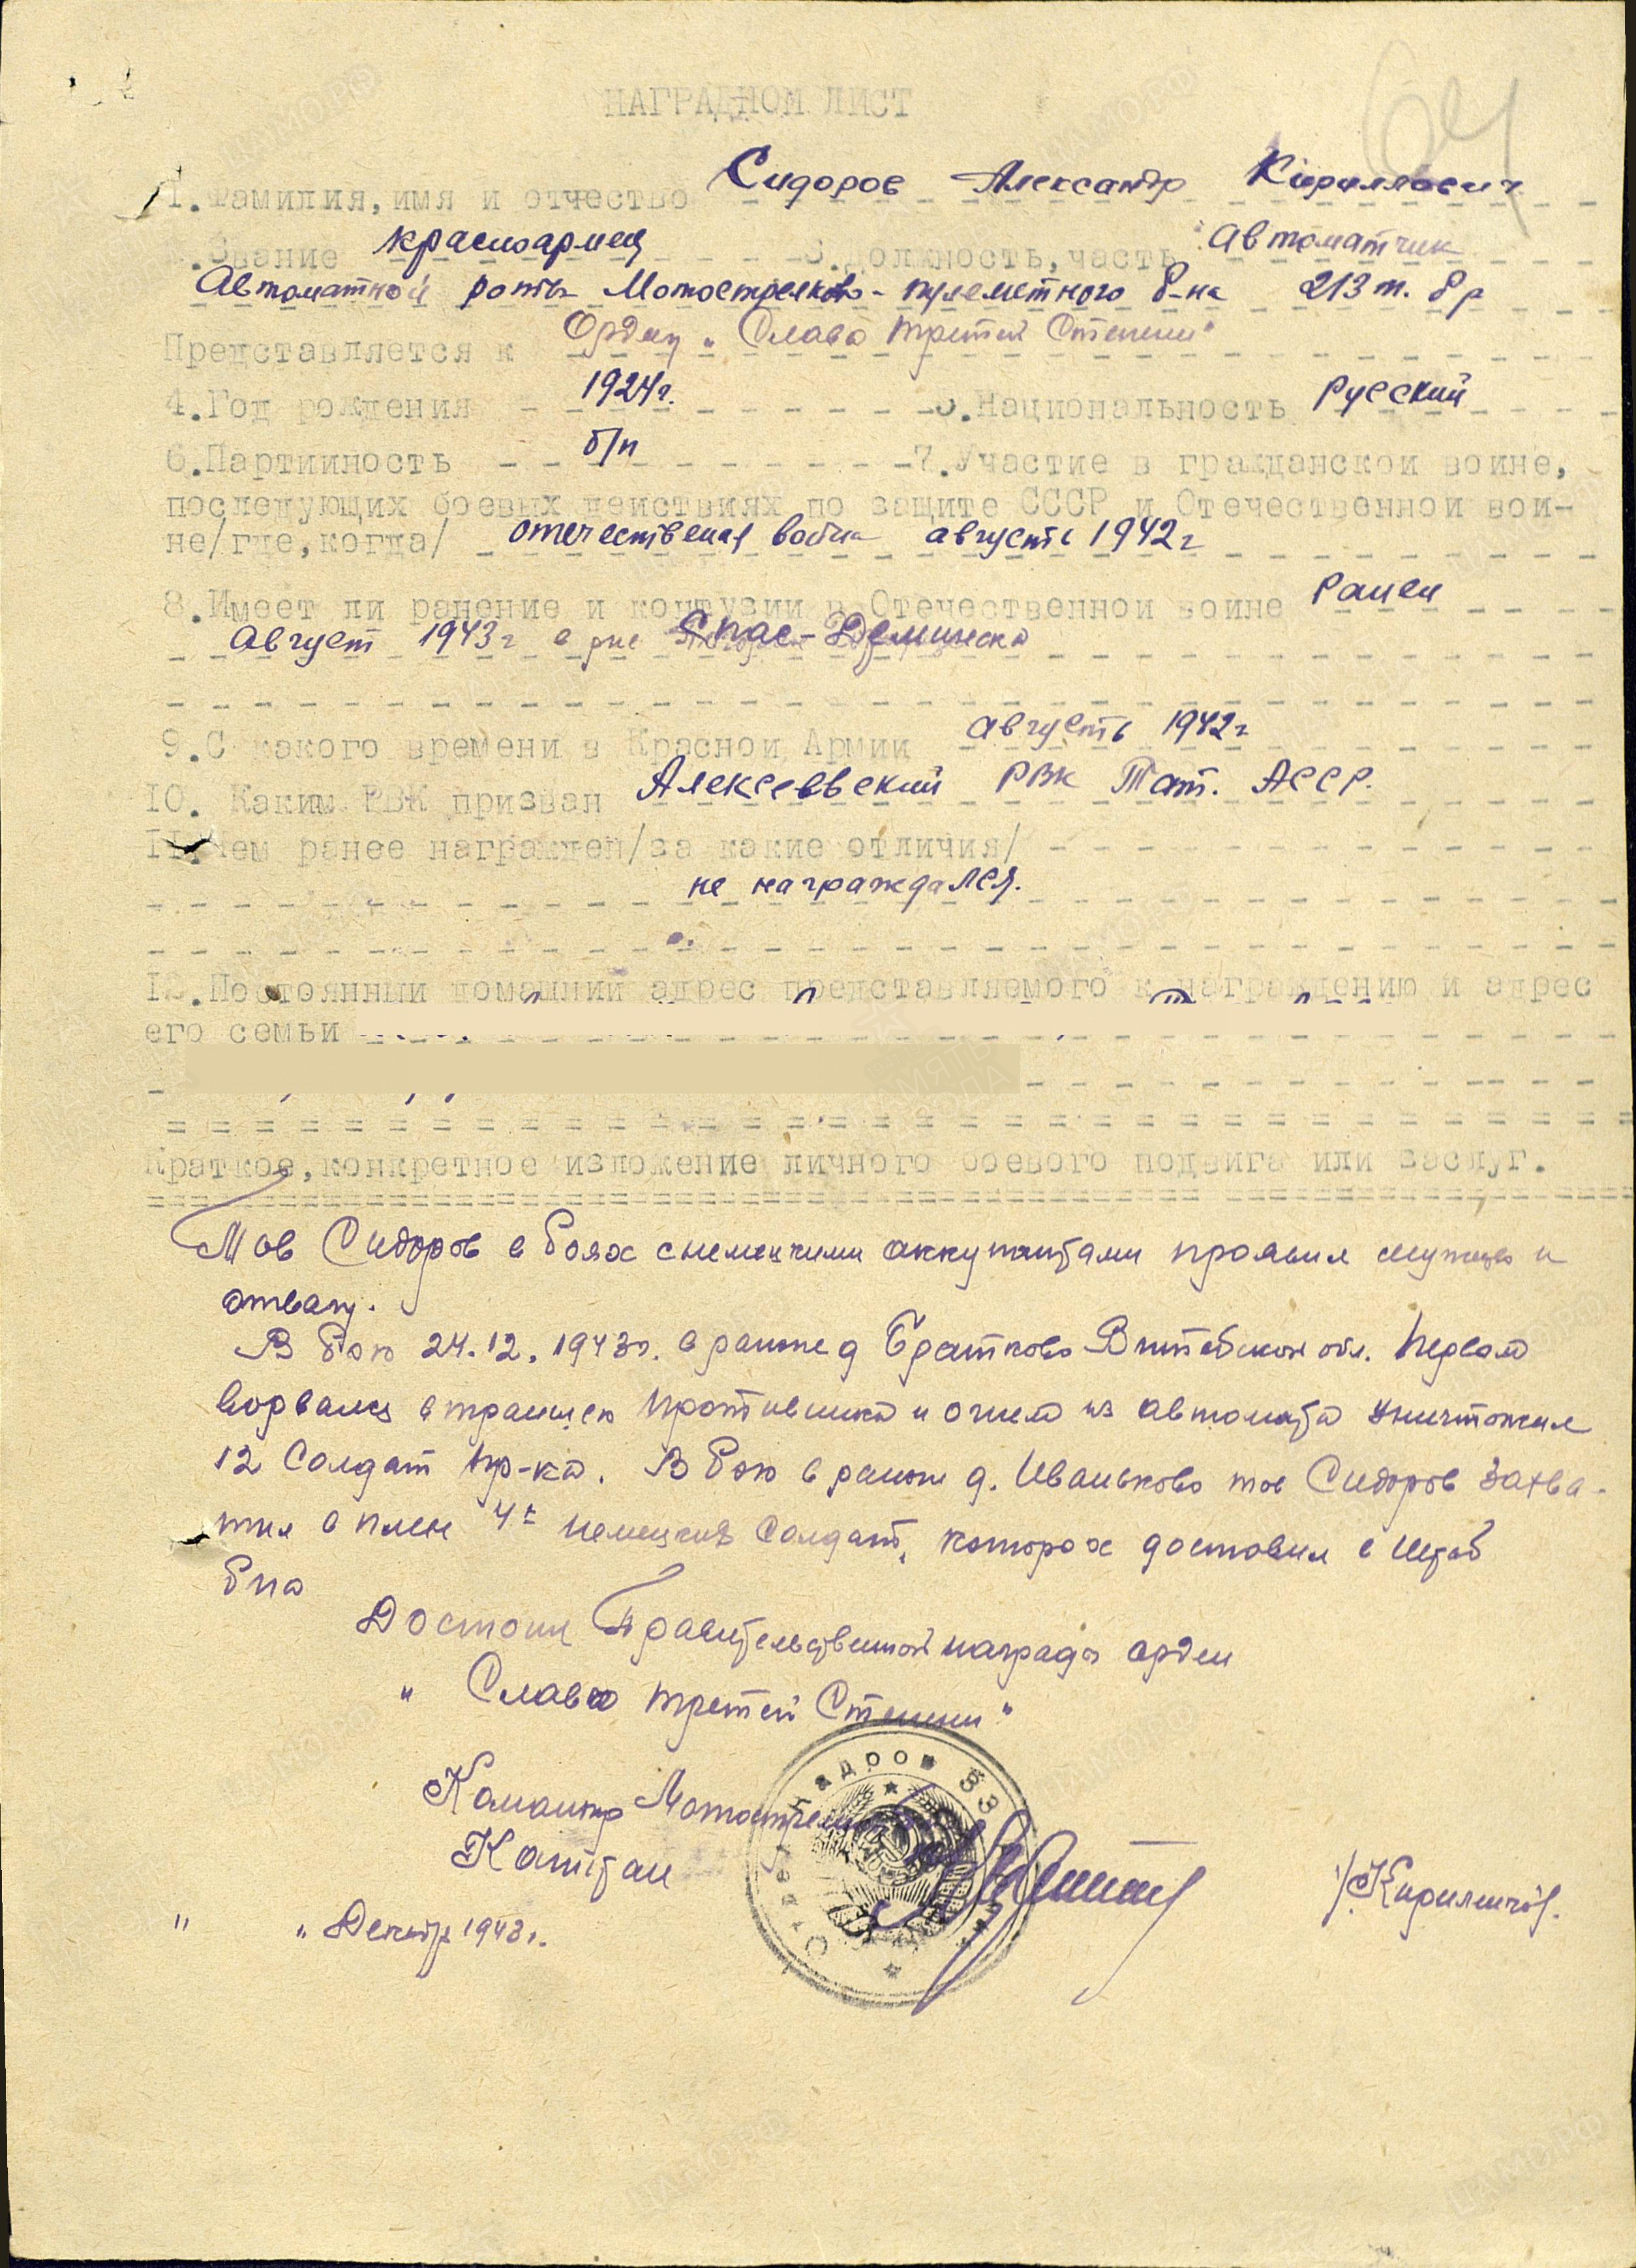 НАГРАДНОЙ ЛИСТ
64
1.Фамилия,имя и отчество Сидоров Александр Кириллович
Звание красноармец 3.Должность,часть Автоматчик
Автоматной роты Мотострелково-пулеметного б-на 213 т. бр
Представляется к Орден „Слава третей Степени"
4.Год рождения 1924г. 5.Национальность Русский
6.Партийность б/п 7.Участие в гражданской войне,
последующих боевых действиях по защите СССР и Отечественной вой-
не/где,когда/ отечественая война августь 1942г
8.Имеет ли ранение и контузии в Отечественной войне Ранен
Август 1943г в рне Спас-Деминска
9.С какого времени в Красной Армии Августь 1942г
10. Каким РВК призван Алексеевский РВК Тат. АССР.
11.Чем ранее награжден/за какие отличия/
не награждался.
12.Постоянный домашний адрес представляемого к награждению и адрес
его семьи
Краткое,конкретное изложение личного боевого подвига или заслуг.
Тов Сидоров в боях с немецкими аккупантами проявил мужество и
отвагу.
В бою 24.12.1943г. в районе д Братково Витебской обл. Первым
ворвался в траншею противника и огнем из автомата уничтожил
12 Солдат пр-ка. В бою в районе д. Иваньково тов Сидоров захва-
тил в плен 4х немецких Солдат, которых доставил в штаб
б-на
Достоин Правительственной награды орден
„Слава третей Степени"
Командир Мотострелк
Капитан /Кириличев/.
" " Декабр 1943г.
Отдел кадров 33